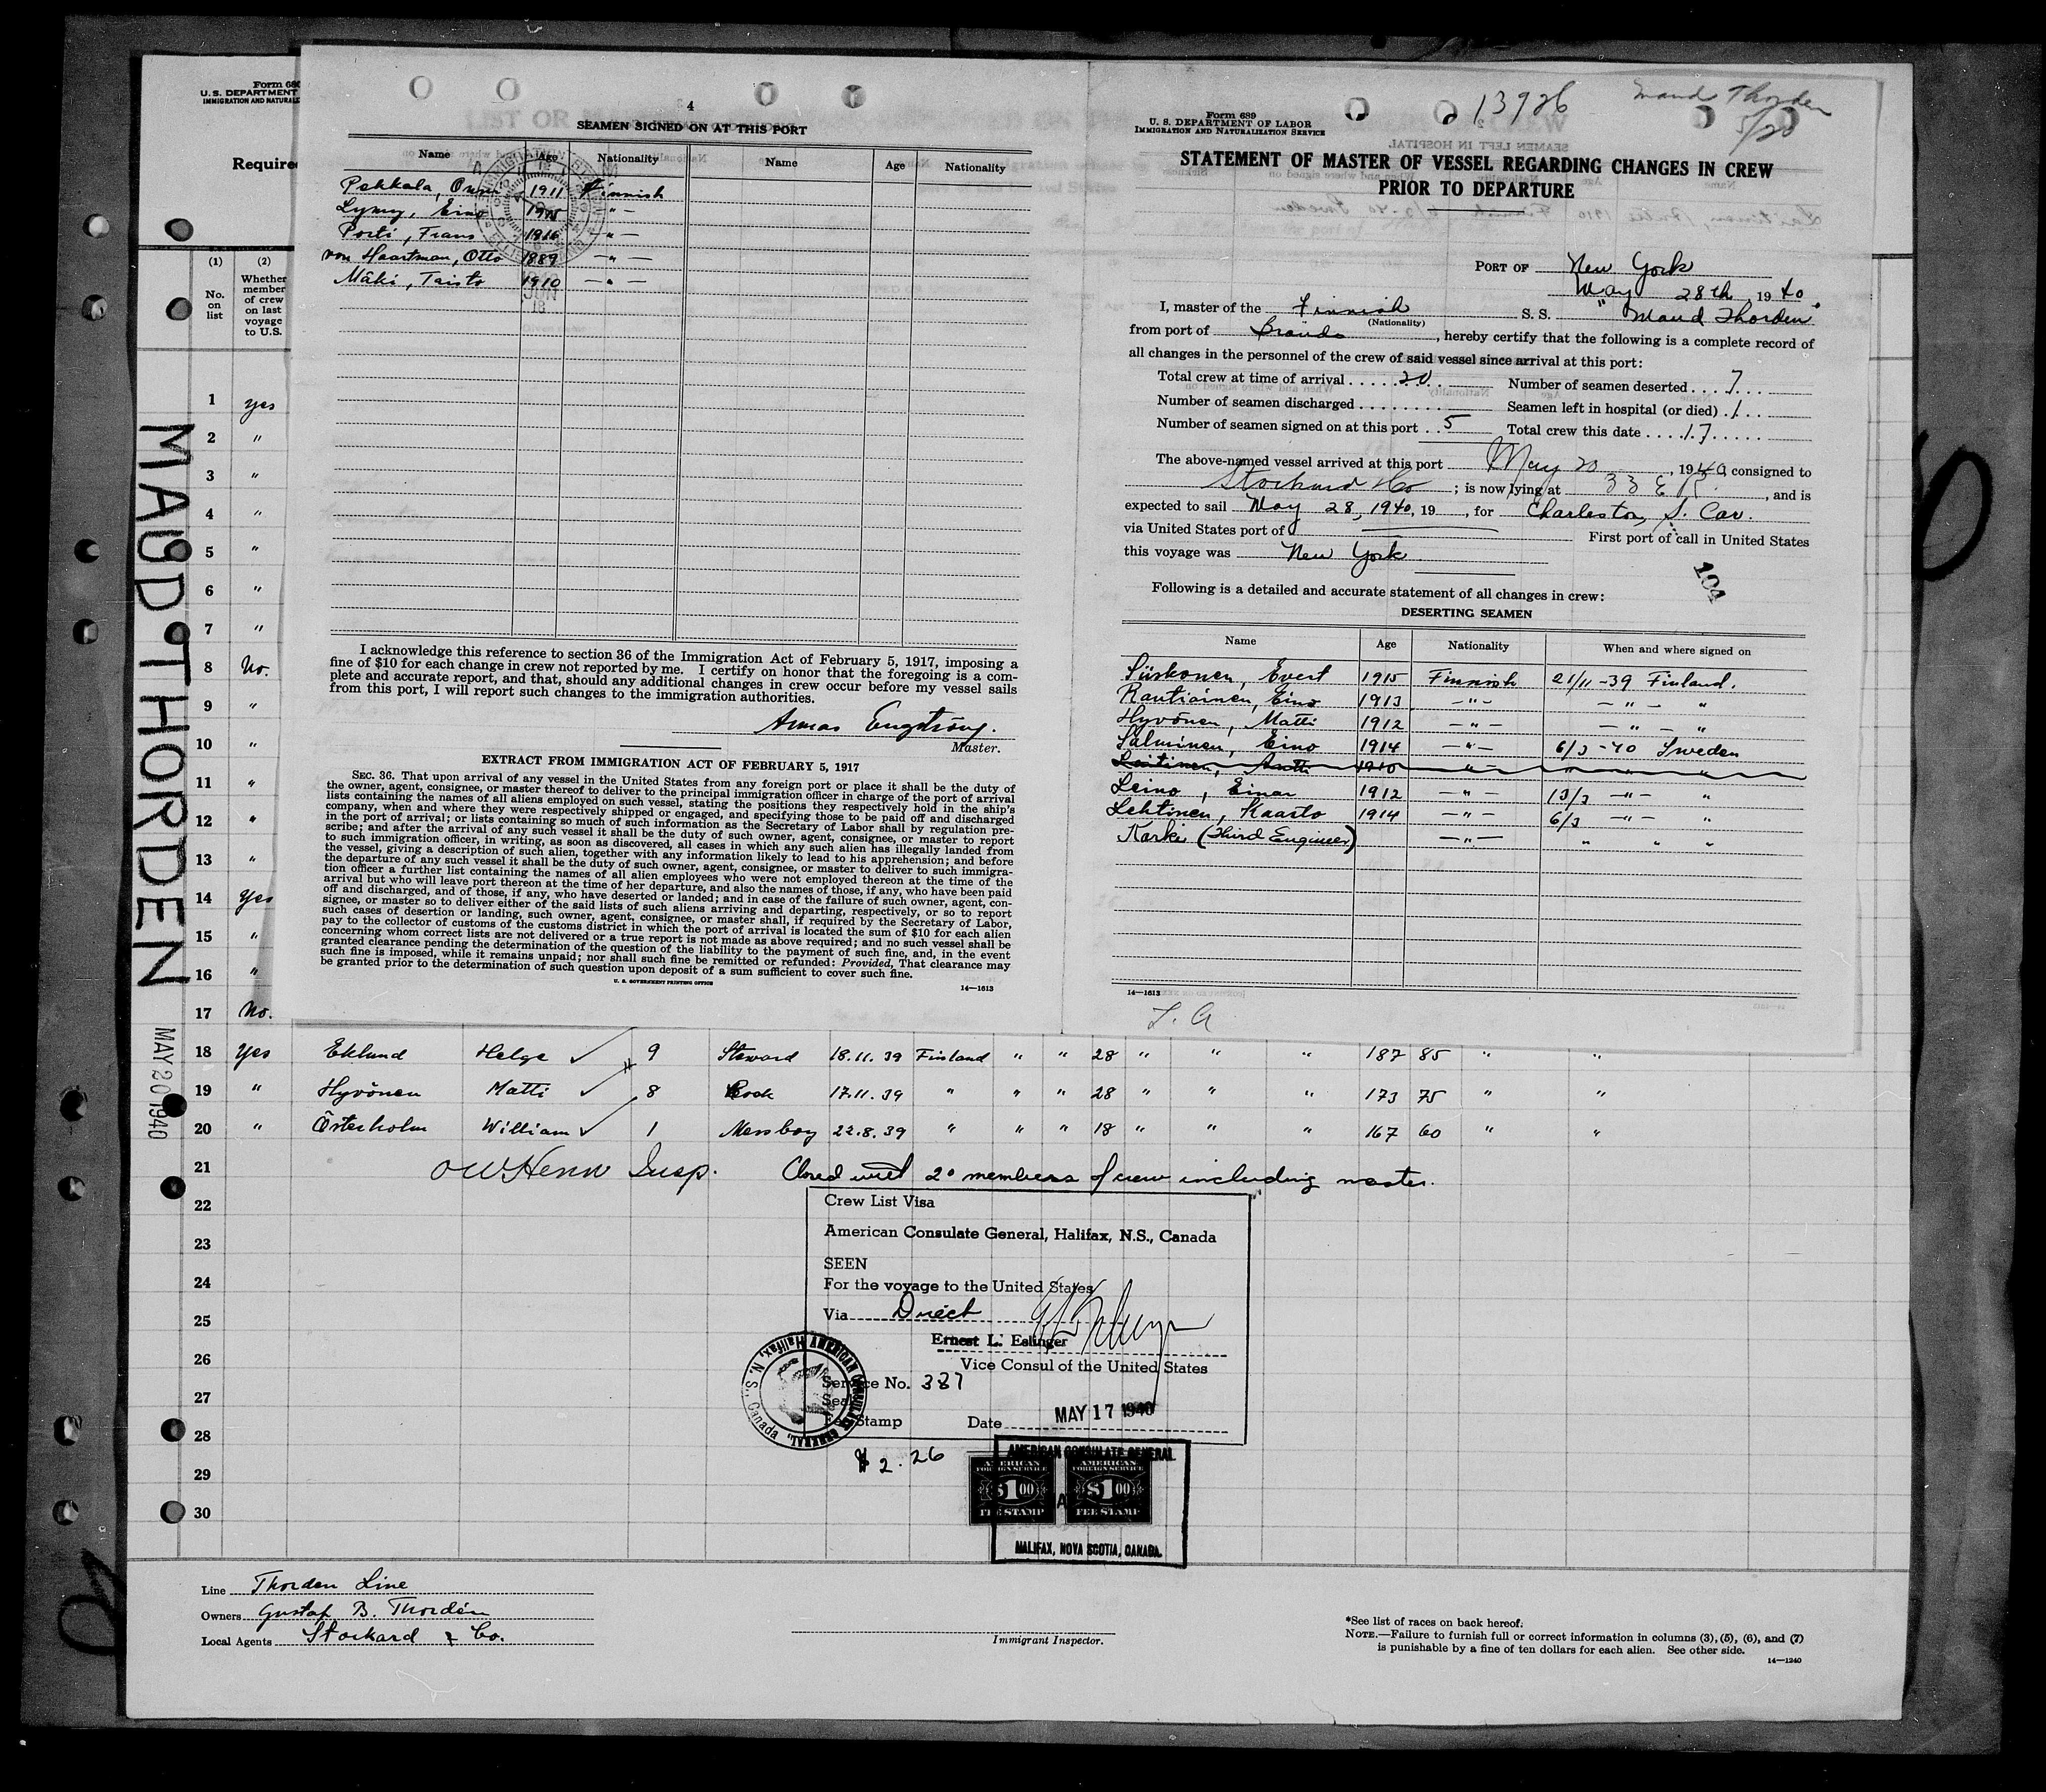 Form 680
U. S. DEPARTMENT
IMMIGRATION AND NATURALI
Required
(1) (2)
No. on list
Whether member of crew on last voyage to U.S.
1 yes
2 "
3 "
4 "
5 "
6 "
7 "
8 No.
9 "
10 "
11 "
12 "
13 "
14 Yes
15 "
16 "
17 No.
MAUD THORDEN
MAY 20 1940
4
SEAMEN SIGNED ON AT THIS PORT
Name Age Nationality Name Age Nationality
Pekkala, Onni 1911 Finnish
Lymy, Eino 1915 - " -
Porti, Frans 1916 - " -
von Haartman, Otto 1889 - " -
Mäki, Taisto 1910 - " -
JUN
18
I acknowledge this reference to section 36 of the Immigration Act of February 5, 1917, imposing a
fine of $10 for each change in crew not reported by me. I certify on honor that the foregoing is a com-
plete and accurate report, and that, should any additional changes in crew occur before my vessel sails
from this port, I will report such changes to the immigration authorities.
Armas Engström.
Master.
EXTRACT FROM IMMIGRATION ACT OF FEBRUARY 5, 1917
SEC. 36. That upon arrival of any vessel in the United States from any foreign port or place it shall be the duty of
the owner, agent, consignee, or master thereof to deliver to the principal immigration officer in charge of the port of arrival
lists containing the names of all aliens employed on such vessel, stating the positions they respectively hold in the ship's
company, when and where they were respectively shipped or engaged, and specifying those to be paid off and discharged
in the port of arrival; or lists containing so much of such information as the Secretary of Labor shall by regulation pre-
scribe; and after the arrival of any such vessel it shall be the duty of such owner, agent, consignee, or master to report
to such immigration officer, in writing, as soon as discovered, all cases in which any such alien has illegally landed from
the vessel, giving a description of such alien, together with any information likely to lead to his apprehension; and before
the departure of any such vessel it shall be the duty of such owner, agent, consignee, or master to deliver to such immigra-
tion officer a further list containing the names of all alien employees who were not employed thereon at the time of the
arrival but who will leave port thereon at the time of her departure, and also the names of those, if any, who have been paid
off and discharged, and of those, if any, who have deserted or landed; and in case of the failure of such owner, agent, con-
signee, or master so to deliver either of the said lists of such aliens arriving and departing, respectively, or so to report
such cases of desertion or landing, such owner, agent, consignee, or master shall, if required by the Secretary of Labor,
pay to the collector of customs of the customs district in which the port of arrival is located the sum of $10 for each alien
concerning whom correct lists are not delivered or a true report is not made as above required; and no such vessel shall be
granted clearance pending the determination of the question of the liability to the payment of such fine, and, in the event
such fine is imposed, while it remains unpaid; nor shall such fine be remitted or refunded: Provided, That clearance may
be granted prior to the determination of such question upon deposit of a sum sufficient to cover such fine.
U. S. GOVERNMENT PRINTING OFFICE
14—1613
13926
Maud Thorden
5/20
Form 689
U. S. DEPARTMENT OF LABOR
IMMIGRATION AND NATURALIZATION SERVICE
STATEMENT OF MASTER OF VESSEL REGARDING CHANGES IN CREW
PRIOR TO DEPARTURE
PORT OF New York
May 28th 1940.
I, master of the Finnish S. S. "Maud Thorden"
(Nationality)
from port of Brändö, hereby certify that the following is a complete record of
all changes in the personnel of the crew of said vessel since arrival at this port:
Total crew at time of arrival 20 Number of seamen deserted 7
Number of seamen discharged Seamen left in hospital (or died) 1
Number of seamen signed on at this port 5 Total crew this date 17
The above-named vessel arrived at this port May 20, 1940 consigned to
Stockard Co; is now lying at 33 E R., and is
expected to sail May 28, 1940, 19 , for Charleston, S. Car.
via United States port of First port of call in United States
this voyage was New York
104
Following is a detailed and accurate statement of all changes in crew:
DESERTING SEAMEN
Name Age Nationality When and where signed on
Siiskonen, Evert 1915 Finnish 21/11-39 Finland.
Rautiainen, Eino 1913 - " - - " - "
Hyvönen, Matti 1912 - " - - " - "
Salminen, Eino 1914 - " - 6/3-40 Sweden
Laitinen, Antti 1910 - " - " " "
Leino, Einar 1912 - " - 13/3 - " - "
Lehtinen, Kaarlo 1914 - " - 6/3 - " - "
Karki (Third Engineer) - " - " " "
14—1613
18 Yes Eklund Helge 9 Steward 18.11.39 Finland " " 28 " " " 187 85 " "
19 " Hyvönen Matti 8 Cook 17.11.39 " " " 28 " " " 173 75 " "
20 " Österholm William 1 Messboy 22.8.39 " " " 18 " " " 167 60 " "
21 Insp. Closed with 20 members of crew including master.
22
23
24
25
26
27
28
29
30
Crew List Visa
American Consulate General, Halifax, N.S., Canada
SEEN
For the voyage to the United States
Via Direct
Ernest L. Eslinger
Vice Consul of the United States
Service No. 387
Seal
Fee Stamp Date MAY 17 1940
$ 2.26
AMERICAN CONSULATE GENERAL, Halifax, N. S., Canada
AMERICAN CONSULATE GENERAL
AMERICAN FOREIGN SERVICE $1.00 FEE STAMP
AMERICAN FOREIGN SERVICE $1.00 FEE STAMP
HALIFAX, NOVA SCOTIA, CANADA.
Line Thorden Line
Owners Gustaf B. Thordén
Local Agents Stockard & Co.
Immigrant Inspector.
*See list of races on back hereof.
NOTE.—Failure to furnish full or correct information in columns (3), (5), (6), and (7)
is punishable by a fine of ten dollars for each alien. See other side.
14—1240